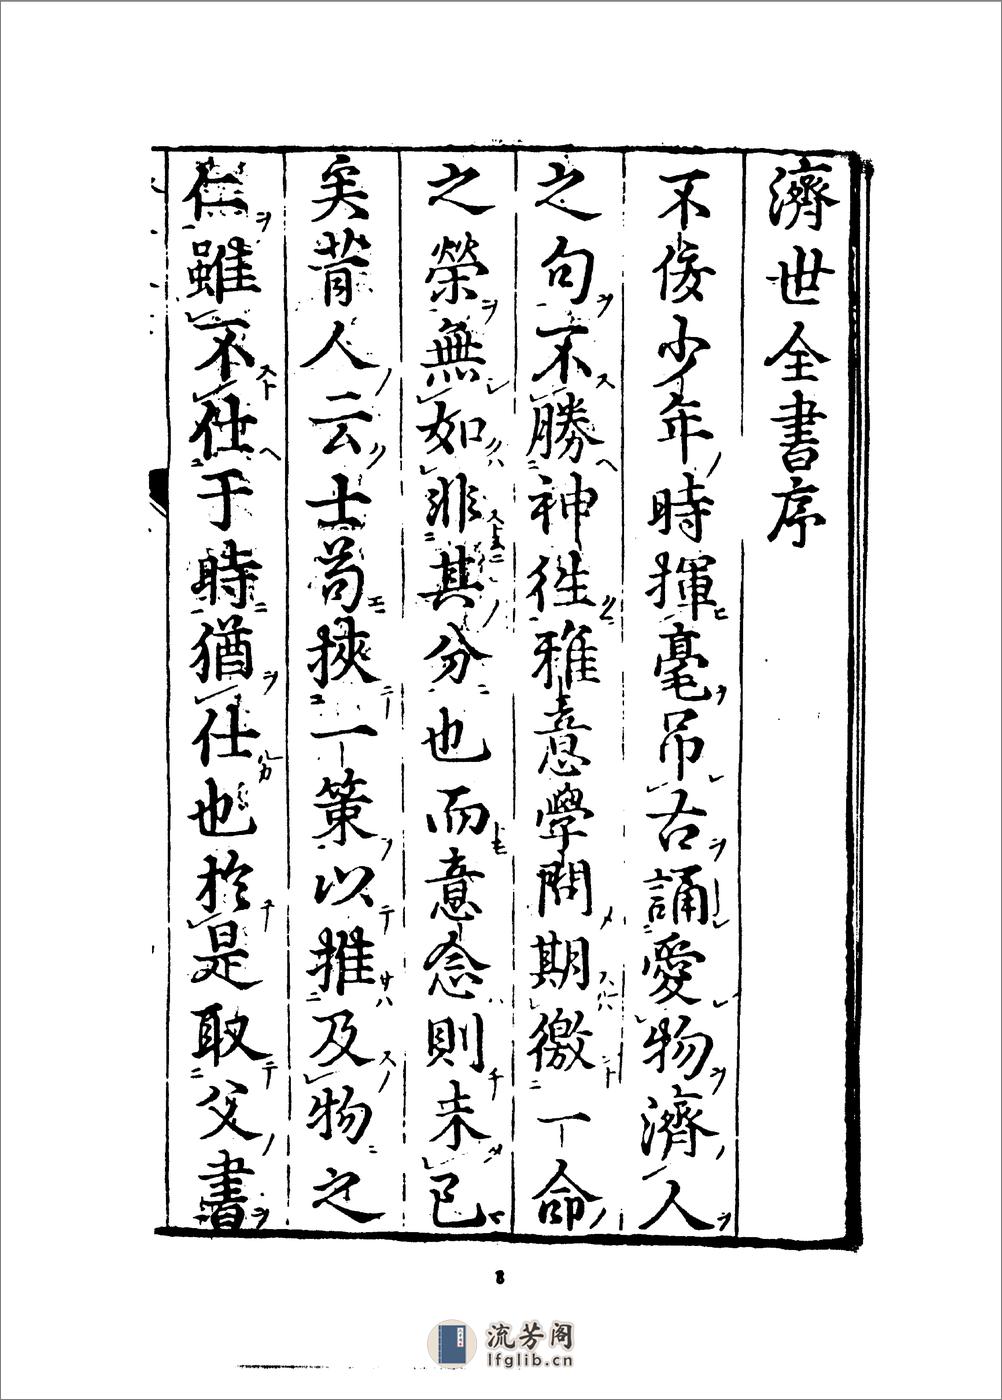 濟世全書序
不佞少年時揮毫吊古誦愛物濟人
之句不勝神徃雅意學問期徼一命
之榮無如非其分也而意念則未已
矣昔人云士苟挾一策以推及物之
仁雖不仕于時猶仕也於是取父書
8
流芳阁
lfglib.cn